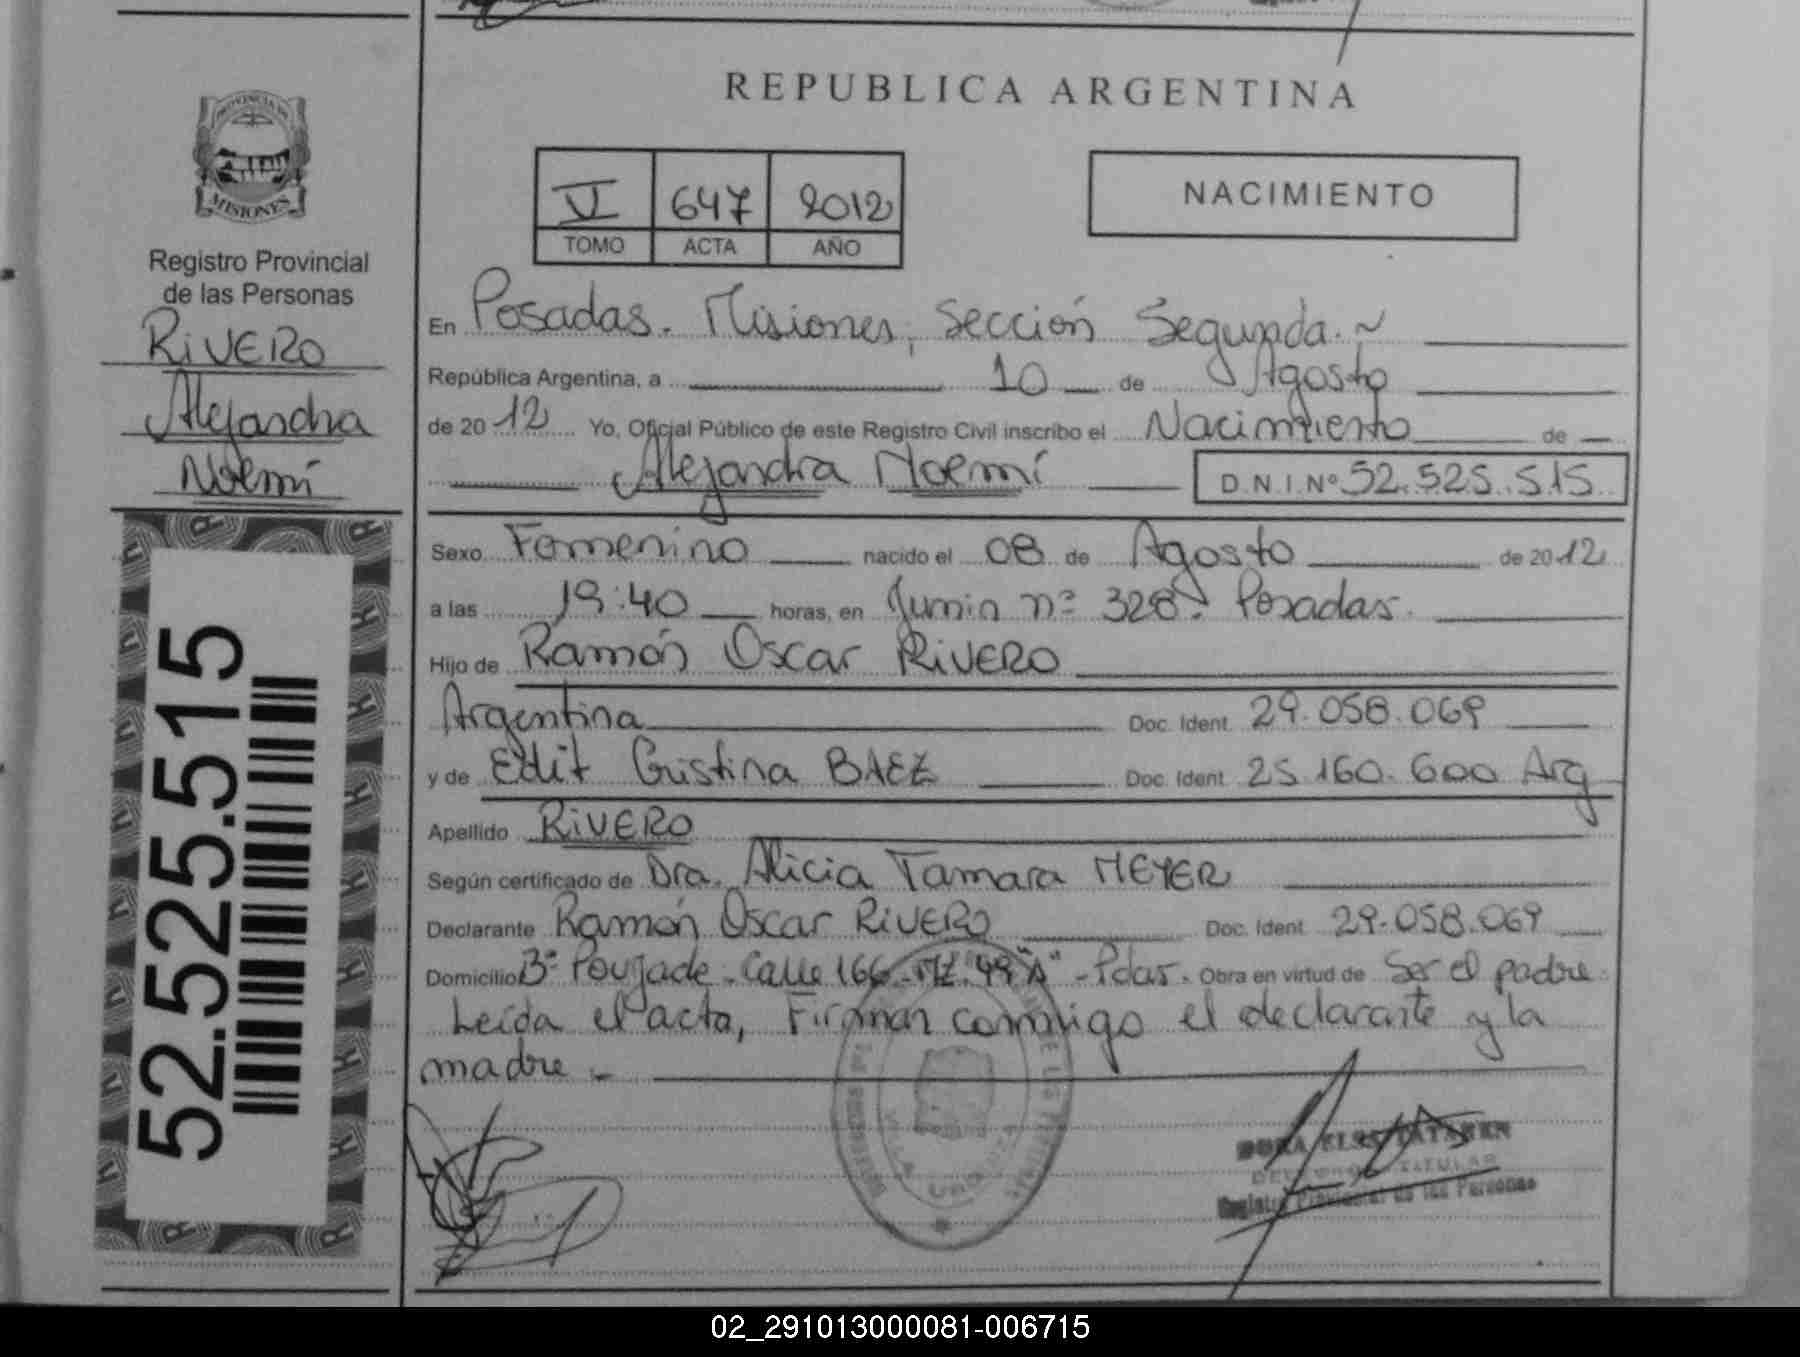 PROVINCIA DE
MISIONES
Registro Provincial
de las Personas
RIVERO
Alejandra
Noemí
52.525.515
REPUBLICA ARGENTINA
VI 647 2012
TOMO ACTA AÑO
NACIMIENTO
En Posadas. Misiones, Sección Segunda.~
República Argentina, a 10 de Agosto
de 2012 Yo, Oficial Público de este Registro Civil inscribo el Nacimiento de
Alejandra Noemí D.N.I.Nº 52.525.515
Sexo Femenino nacido el 08 de Agosto de 2012
a las 19:40 horas, en Junin nº 328. Posadas.
Hijo de Ramón Oscar RIVERO
Argentina Doc. Ident. 29.058.069
y de Edit Cristina BAEZ Doc. Ident. 25.160.600 Arg
Apellido RIVERO
Según certificado de Dra. Alicia Tamara MEYER
Declarante Ramón Oscar RIVERO Doc. Ident. 29.058.069
Domicilio Bº Poujade - Calle 166 - Mz. 49 "A" - Pdas. Obra en virtud de Ser el padre.
Leída el acta, Firman conmigo el declarante y la
madre.-
Registro Provincial de las Personas
02_291013000081-006715